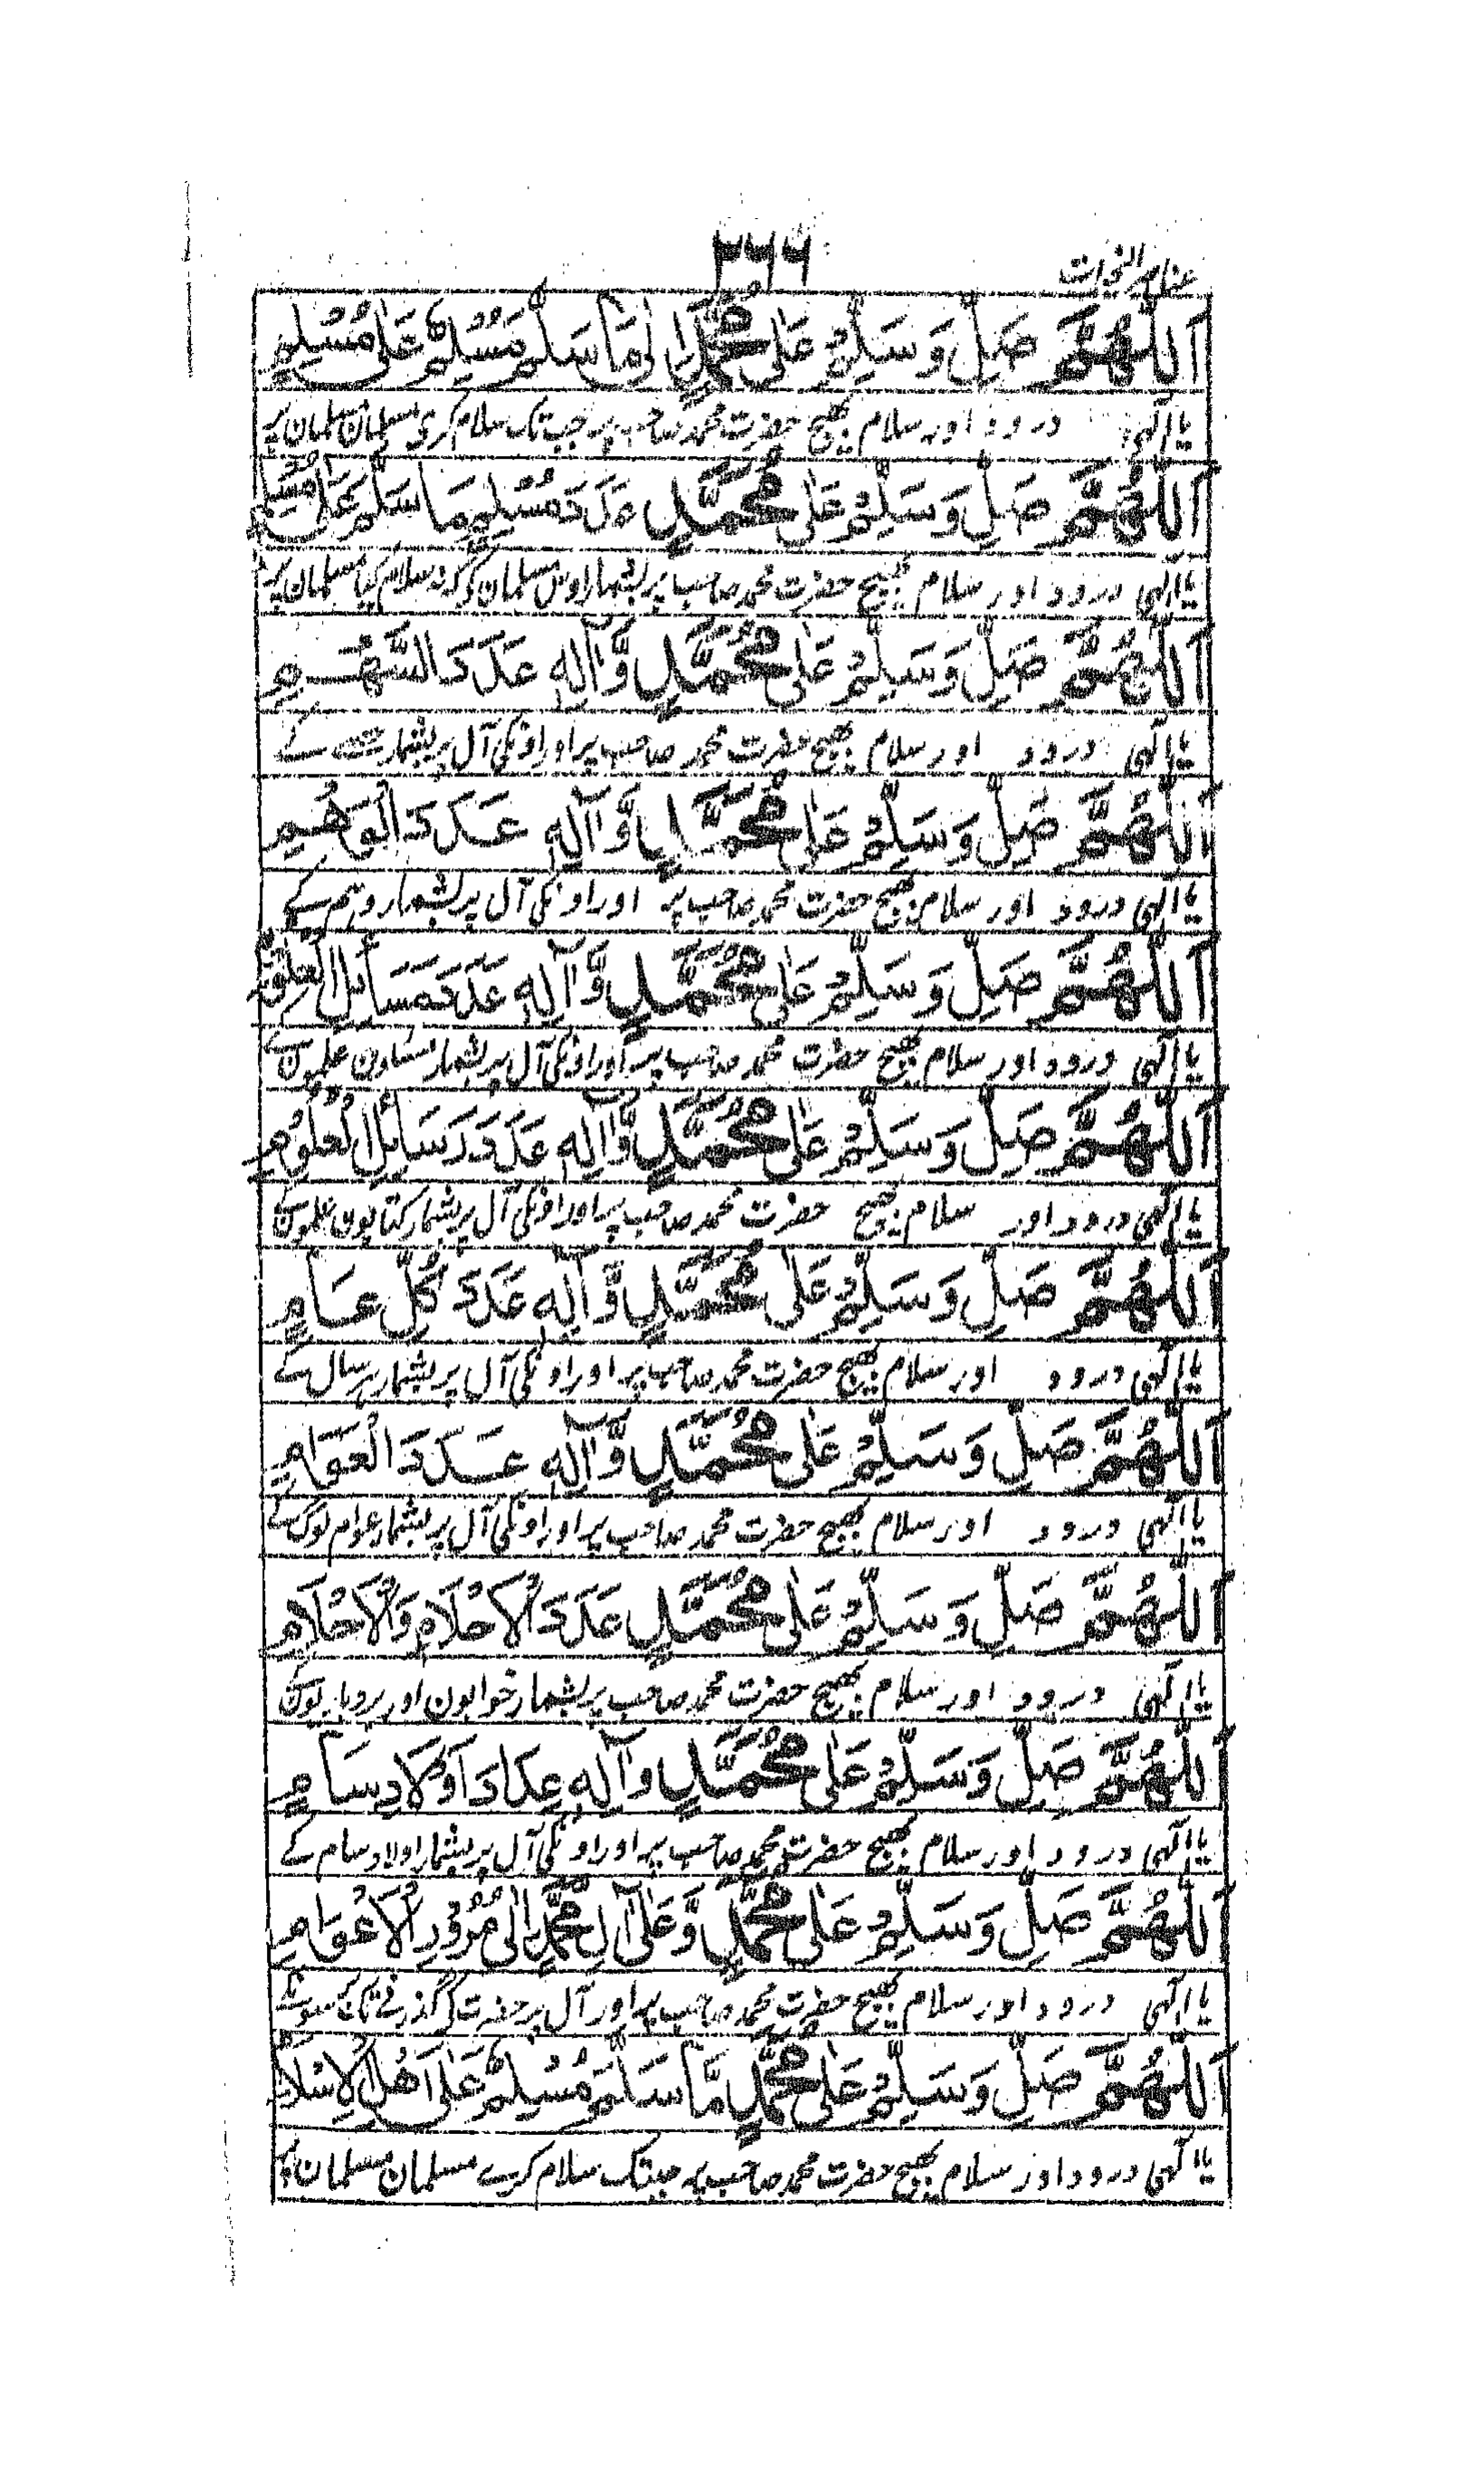 ۲۶۶
عناصر الخیرات
اَللّٰهُمَّ صَلِّ وَسَلِّمْ عَلٰی مُحَمَّدٍ اِلٰی مَا سَلَّمَ مُسْلِمٌ عَلٰی مُسْلِمٍ
یا الٰہی درود اور سلام بھیج حضرت محمد صاحب پر جب تک سلام کری مسلمان مسلمان پر
اَللّٰهُمَّ صَلِّ وَسَلِّمْ عَلٰی مُحَمَّدٍ عَدَدَ مُسْلِمٍ مَا سَلَّمَ عَلٰی مُسْلِمٍ
یا الٰہی درود اور سلام بھیج حضرت محمد صاحب پر بشمار اوس مسلمان کو کہ سلام کیا مسلمان پر
اَللّٰهُمَّ صَلِّ وَسَلِّمْ عَلٰی مُحَمَّدٍ وَّاٰلِهٖ عَدَدَ السَّهْمِ
یا الٰہی درود اور سلام بھیج حضرت محمد صاحب پر اور اونکی آل پر بشمار کے
اَللّٰهُمَّ صَلِّ وَسَلِّمْ عَلٰی مُحَمَّدٍ وَّاٰلِهٖ عَدَدَ الْوَهْمِ
یا الٰہی درود اور سلام بھیج حضرت محمد صاحب پر اور اونکی آل پر بشمار وہم کے
اَللّٰهُمَّ صَلِّ وَسَلِّمْ عَلٰی مُحَمَّدٍ وَّاٰلِهٖ عَدَدَ مَسَائِلِ الْعُلُوْمِ
یا الٰہی درود اور سلام بھیج حضرت محمد صاحب پر اور اونکی آل پر بشمار مسئلون علمون کے
اَللّٰهُمَّ صَلِّ وَسَلِّمْ عَلٰی مُحَمَّدٍ وَّاٰلِهٖ عَدَدَ رَسَائِلِ الْعُلُوْمِ
یا الٰہی درود اور سلام بھیج حضرت محمد صاحب پر اور اونکی آل پر بشمار کتابون علمون کے
اَللّٰهُمَّ صَلِّ وَسَلِّمْ عَلٰی مُحَمَّدٍ وَّاٰلِهٖ عَدَدَ كُلِّ عَامٍ
یا الٰہی درود اور سلام بھیج حضرت محمد صاحب پر اور اونکی آل پر بشمار ہر سال کے
اَللّٰهُمَّ صَلِّ وَسَلِّمْ عَلٰی مُحَمَّدٍ وَّاٰلِهٖ عَدَدَ الْعَوَامِ
یا الٰہی درود اور سلام بھیج حضرت محمد صاحب پر اور اونکی آل پر بشمار عوام لوگ کے
اَللّٰهُمَّ صَلِّ وَسَلِّمْ عَلٰی مُحَمَّدٍ عَدَدَ الْاَحْلَامِ وَالْاَحْلَامِ
یا الٰہی درود اور سلام بھیج حضرت محمد صاحب پر بشمار خوابون اور بردباریون کے
اَللّٰهُمَّ صَلِّ وَسَلِّمْ عَلٰی مُحَمَّدٍ وَاٰلِهٖ عِدَادَ اَوْلَادِ سَامٍ
یا الٰہی درود اور سلام بھیج حضرت محمد صاحب پر اور اونکی آل پر بشمار اولاد سام کے
اَللّٰهُمَّ صَلِّ وَسَلِّمْ عَلٰی مُحَمَّدٍ وَّعَلٰی اٰلِ مُحَمَّدٍ اِلٰی مُرُوْرِ الْاَعْوَامِ
یا الٰہی درود اور سلام بھیج حضرت محمد صاحب پر اور آل پر حضرت کی گذرنے تک برسونکے
اَللّٰهُمَّ صَلِّ وَسَلِّمْ عَلٰی مُحَمَّدٍ مَّا سَلَّمَ مُسْلِمٌ عَلٰی اَهْلِ الْاِسْلَامِ
یا الٰہی درود اور سلام بھیج حضرت محمد صاحب پر جبتک سلام کرے مسلمان مسلمان پر